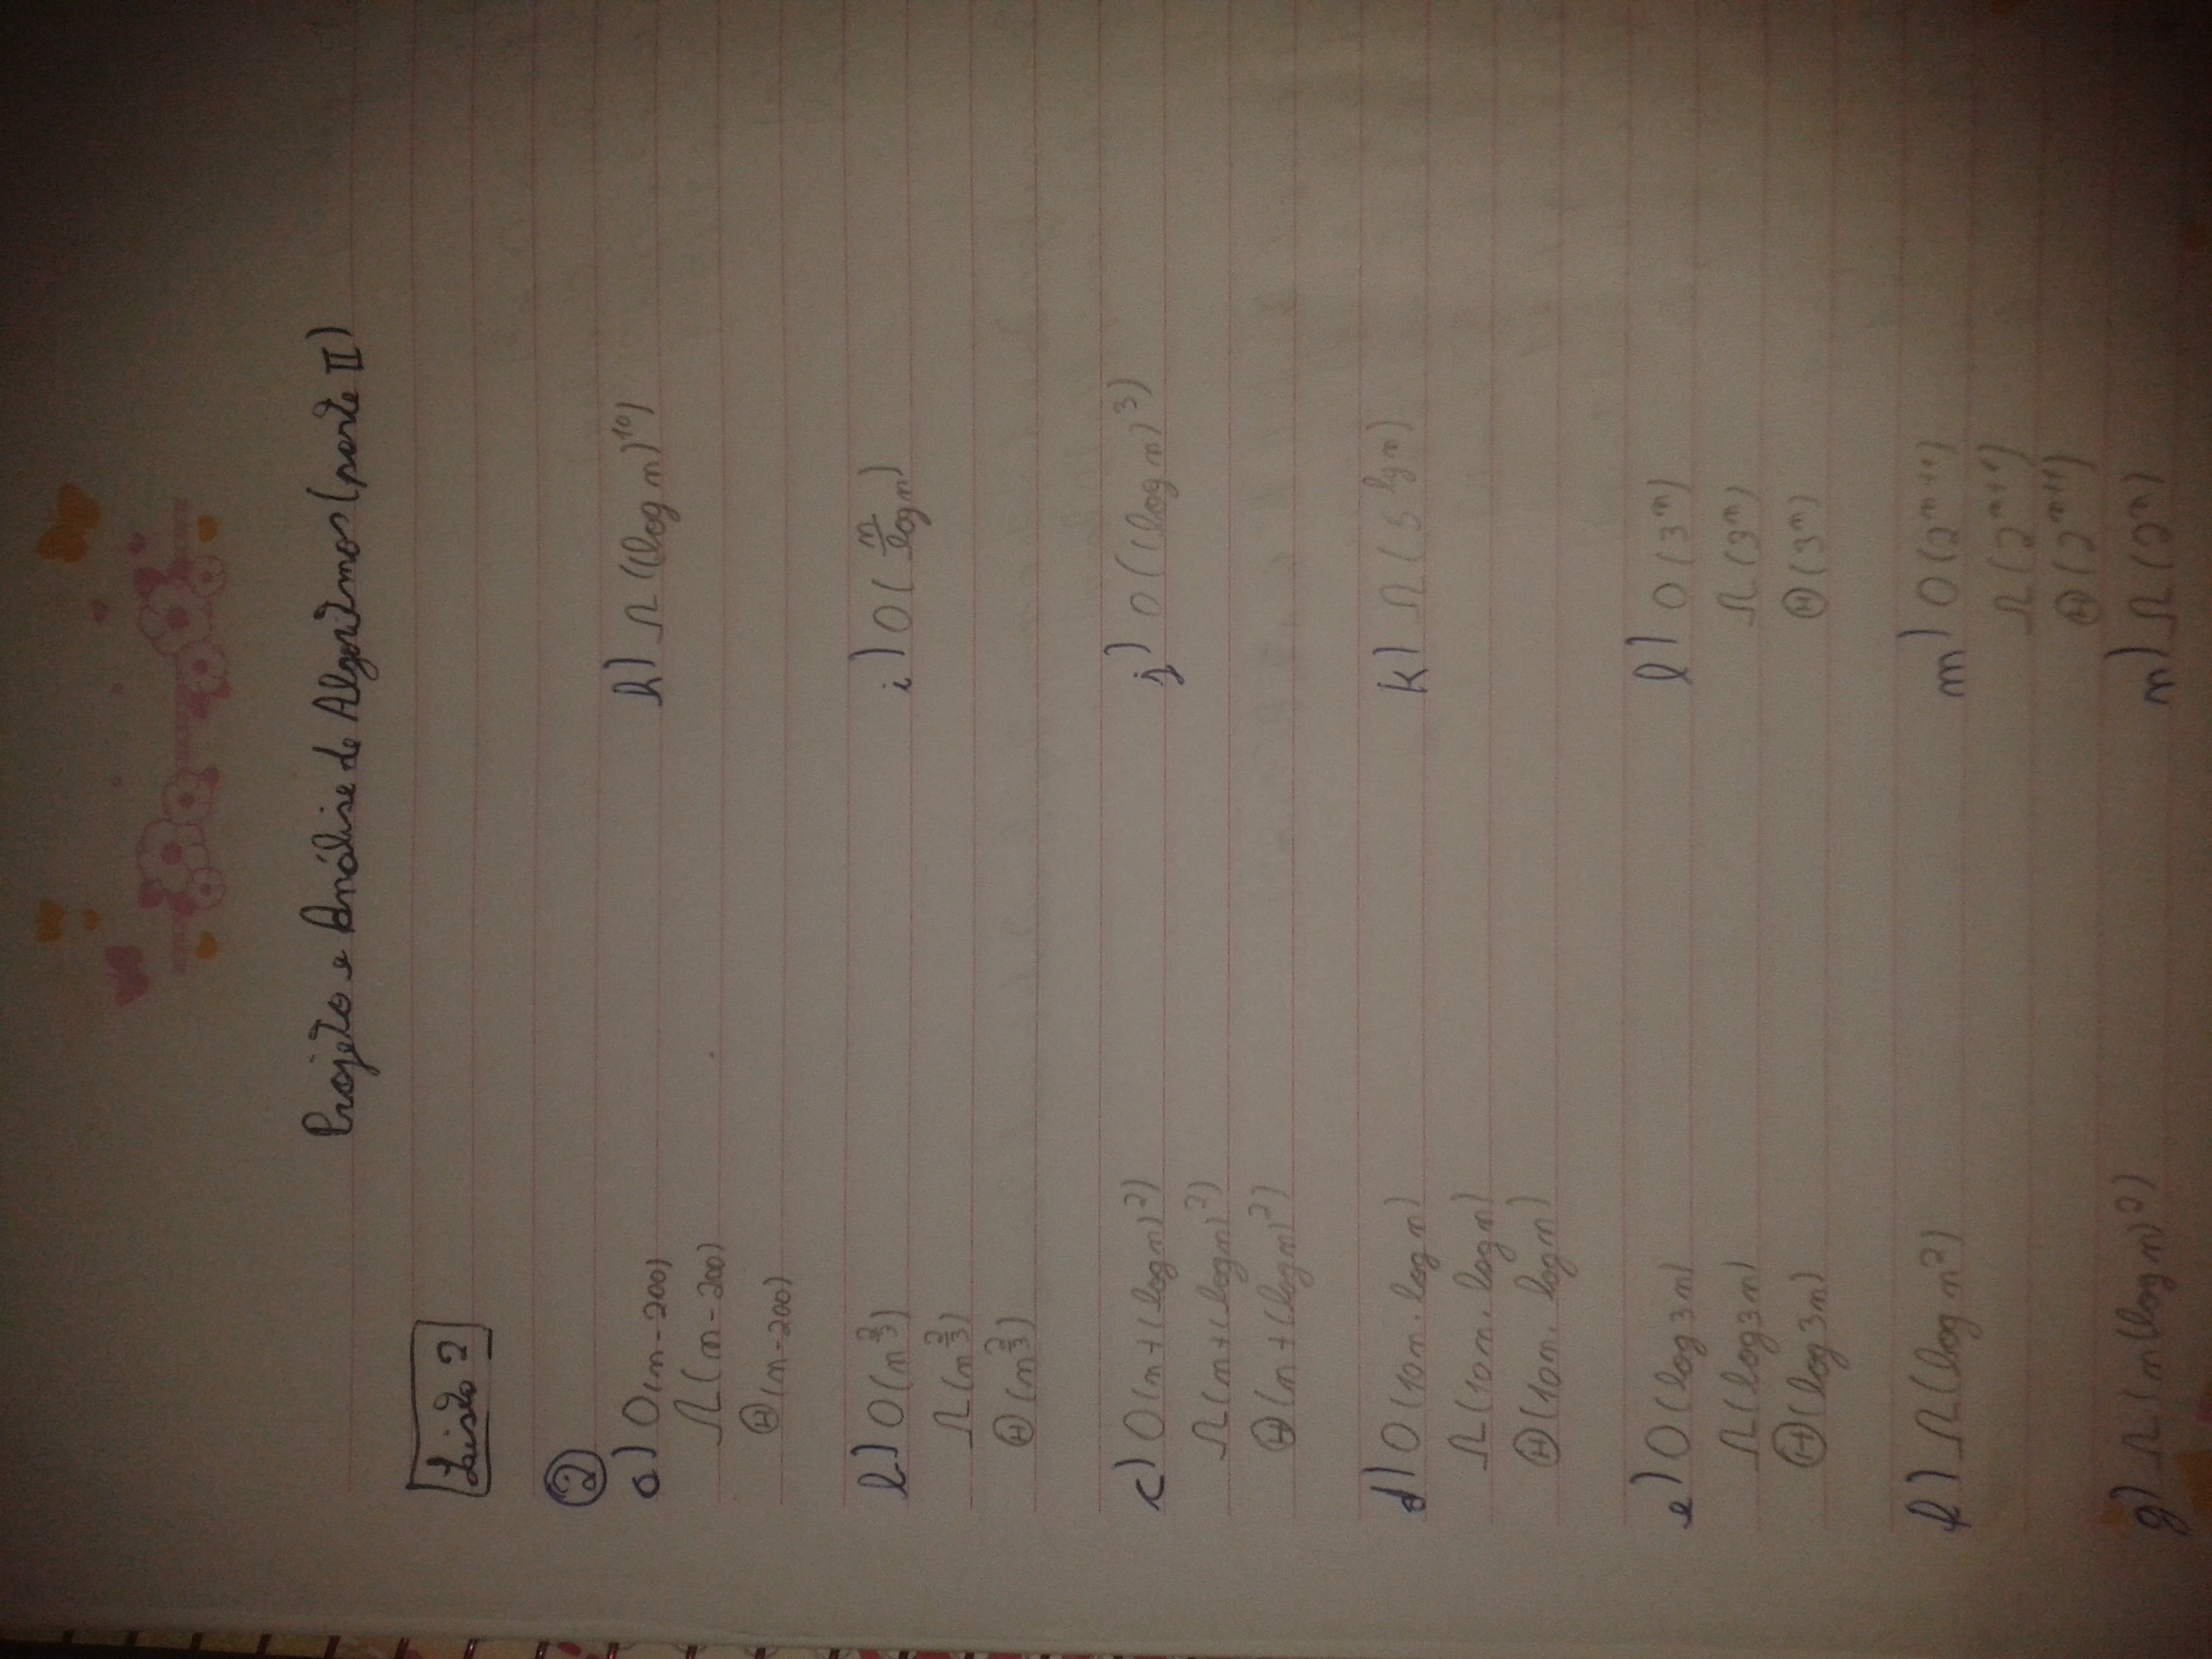 Projeto e Análise de Algoritmos (parte II)
Lista 2
2
a) O(n-200)
Ω(n-200)
Θ(n-200)
b) O(n^2/3)
Ω(n^2/3)
Θ(n^2/3)
c) O(n+(log n)^2)
Ω(n+(log n)^2)
Θ(n+(log n)^2)
d) O(10n.log n)
Ω(10n.log n)
Θ(10n.log n)
e) O(log 3n)
Ω(log 3n)
Θ(log 3n)
f) Ω(log n^2)
g) Ω(n(log n)^2)
h) Ω((log n)^10)
i) O(n/log n)
j) O((log n)^3)
k) Ω(5^lg n)
l) O(3^n)
Ω(3^n)
Θ(3^n)
m) O(2^n+1)
Ω(2^n+1)
Θ(2^n+1)
n) Ω(2^n)